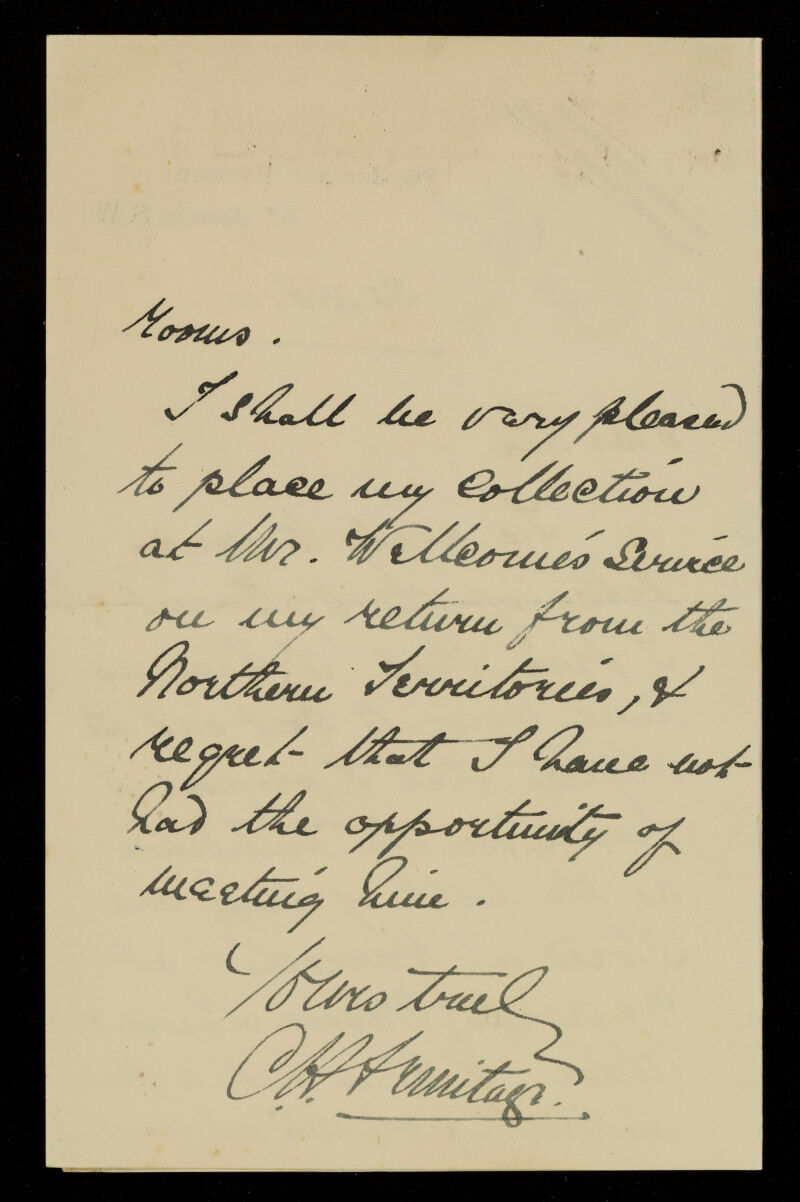 rooms.
I shall be very pleased
to place my Collection
at Mr. Wellcome's Service
on my return from the
Northern Territories, &
regret that I have not
had the opportunity of
meeting him.
Yours truly
C.H. Armitage.